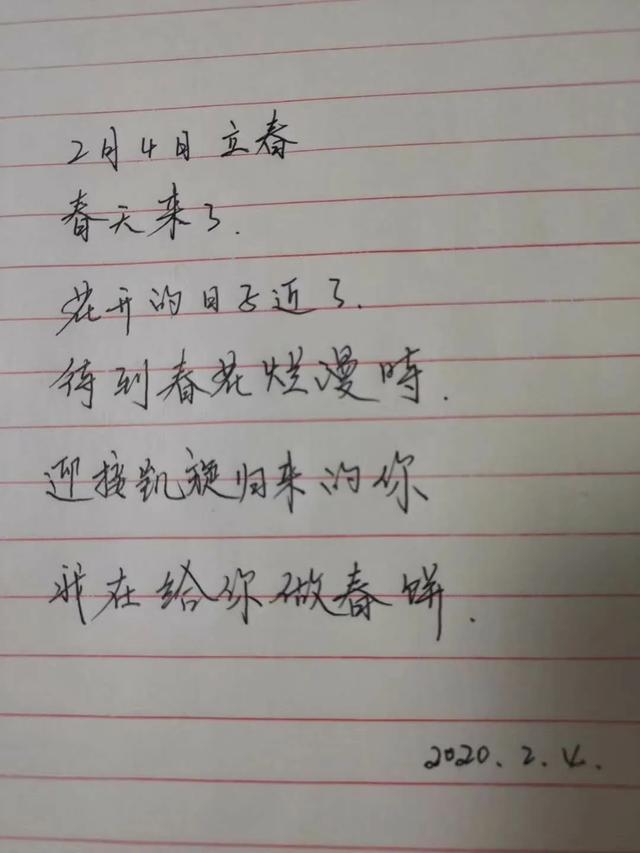 2月4日 立春
春天来了.
花开的日子近了.
待到春花烂漫時.
迎接凯旋归来的你
我在给你做春餅.
2020.2.4.